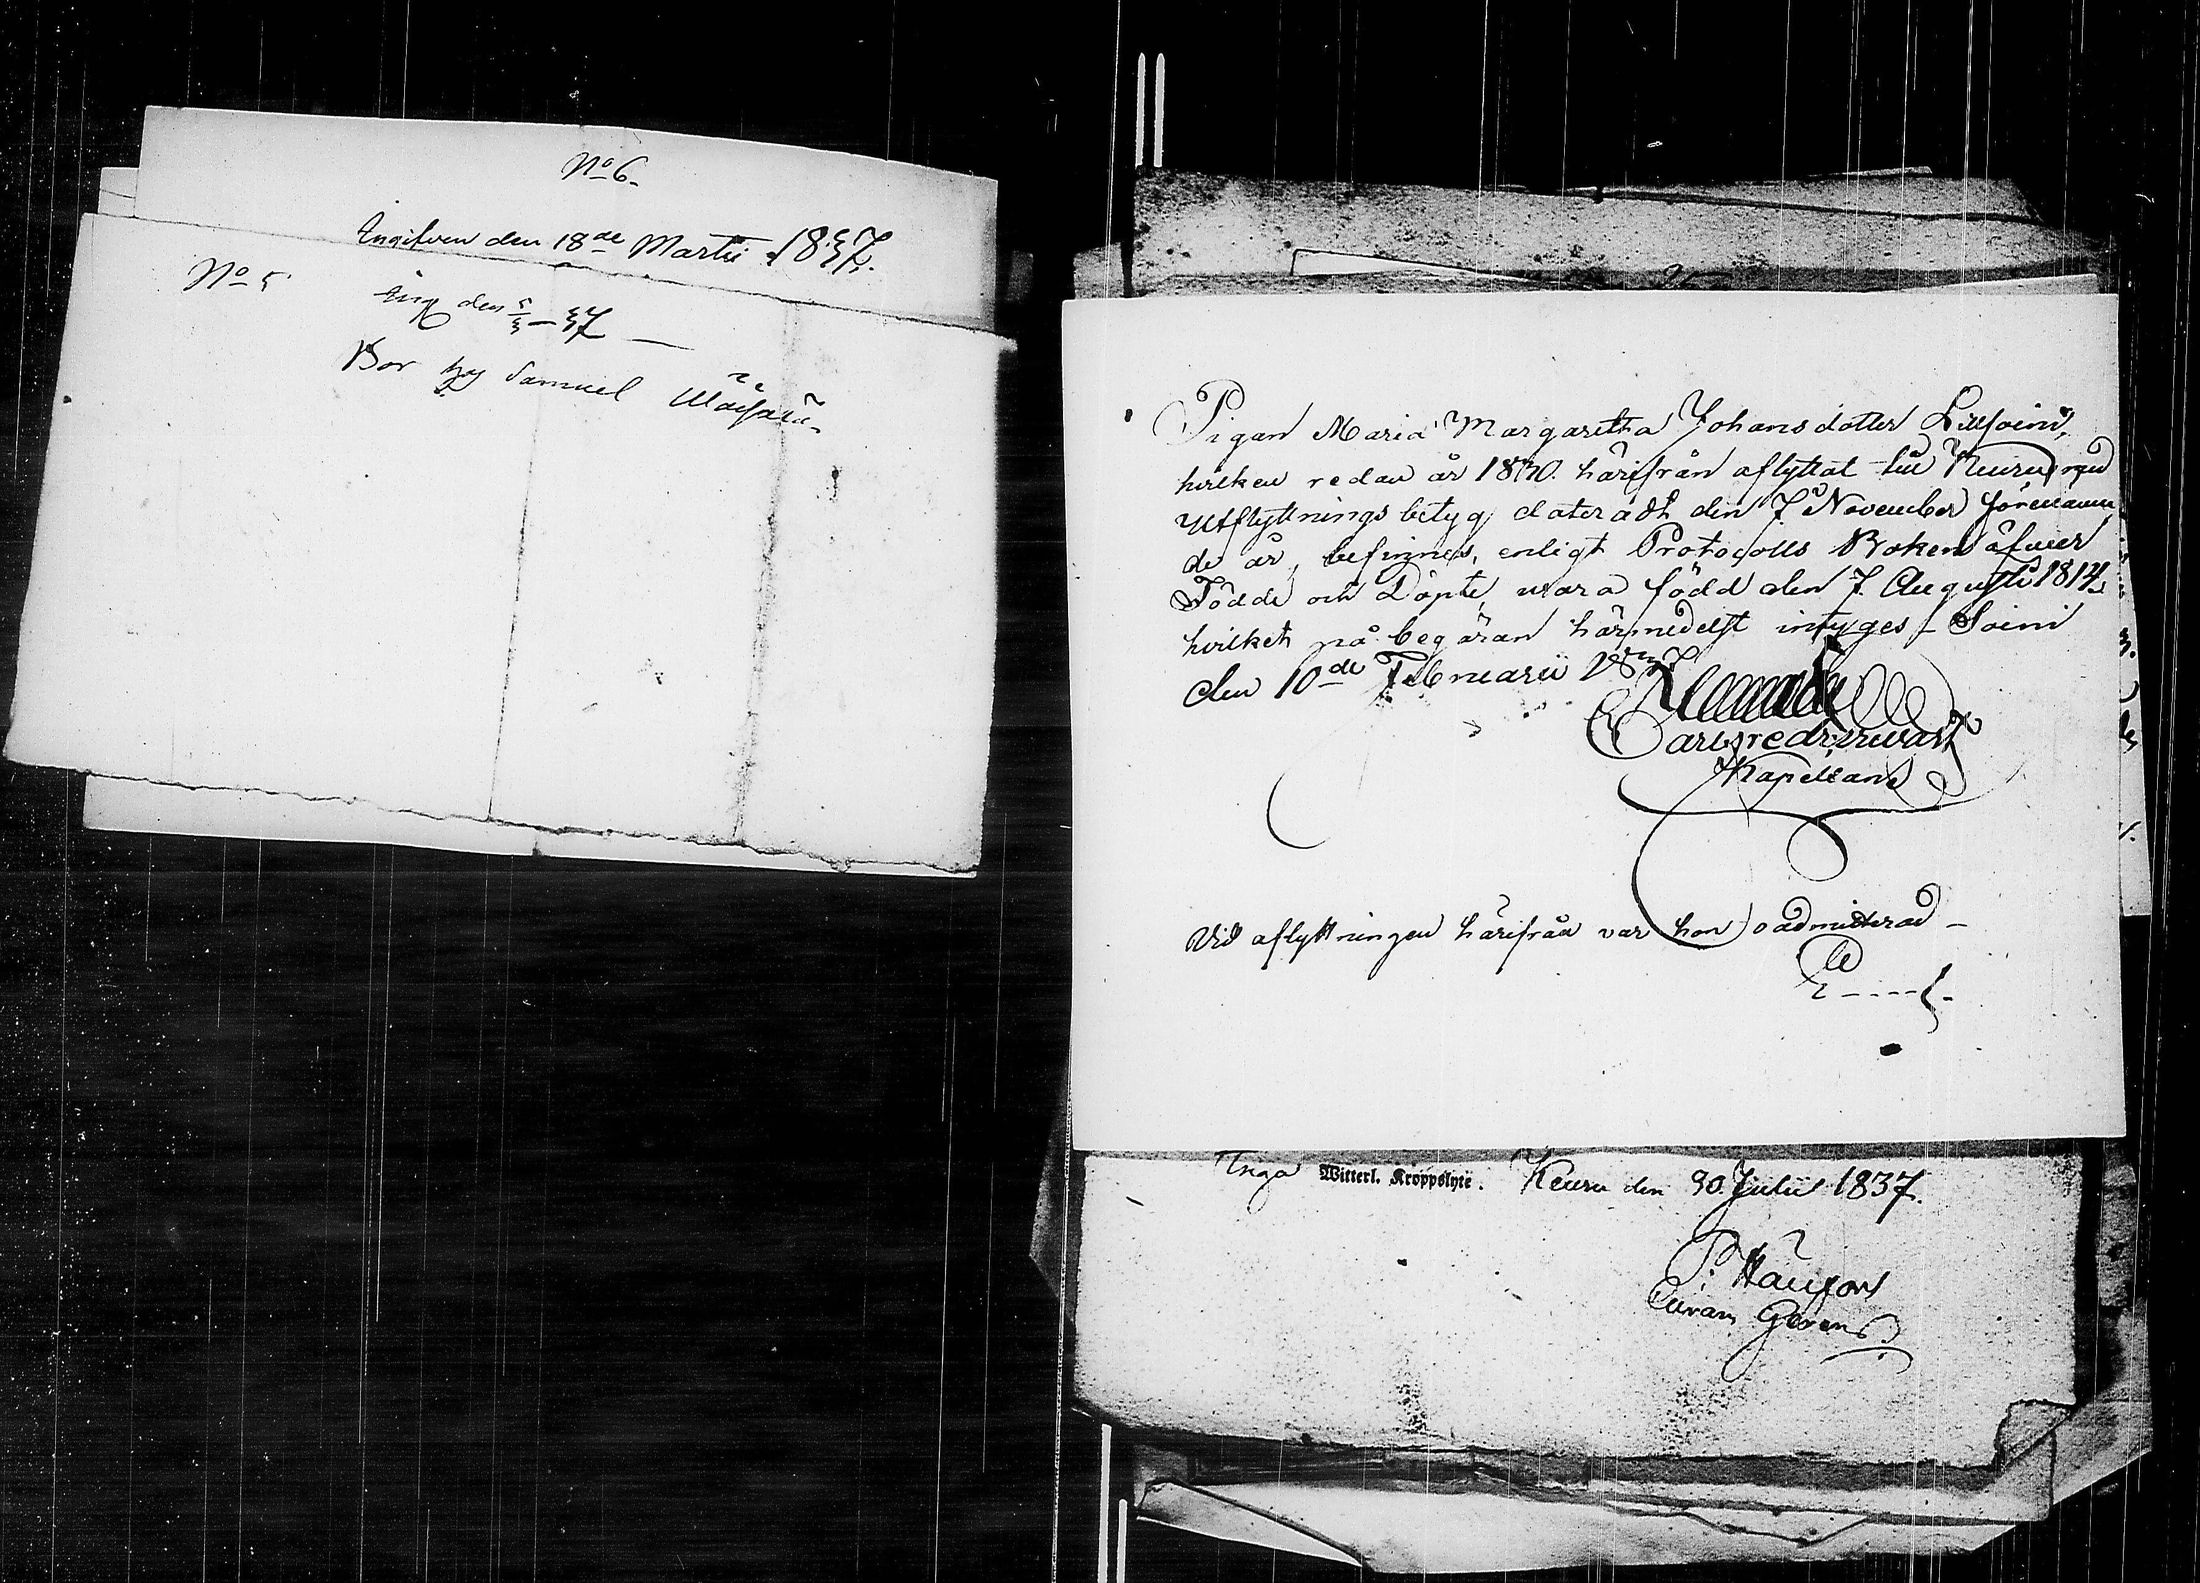 No 6.
Ingifven den 18de Martii 1837.
No 5
Ing den 5/3 - 37
Bor hos Samuel
Pigan Maria Margaretha Johansdotter Lillsoini,
hvilken redan år 1830. härifrån aflyttat till Keuru med
Utflyttnings betyg dateradt den 7 November förenämn
de år, befinnes, enligt Protocolls Boken öfwer
Födde och Döpte, wara född den 7. Augusti 1814,
hvilket på begäran härmedelst intyges - Soini
den 10de Februarii 1837
Kapellan
Vid aflyttningen härifrån var hon oadmitterad -
Inga Witterl. Kroppslyte. Keuru den 30. Julii 1837.
P: Hällfors
Curam Gerens